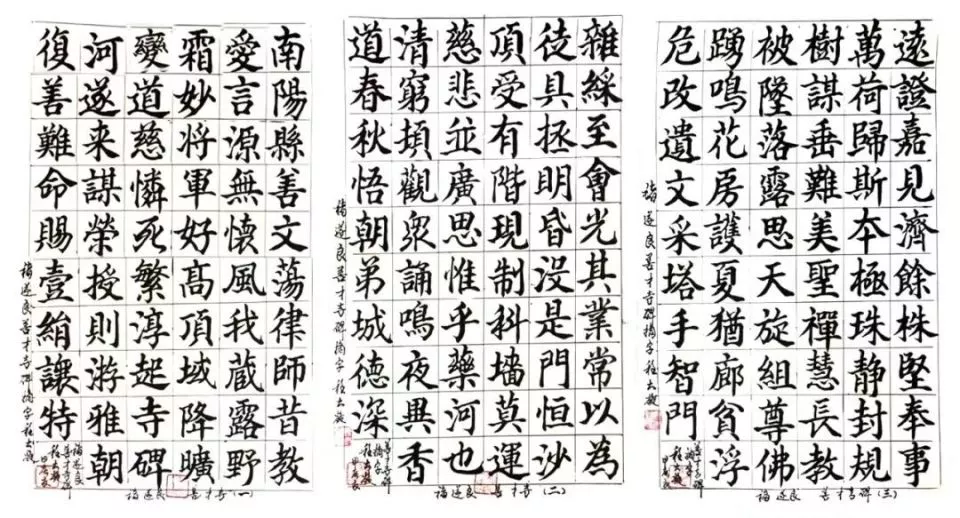 南陽縣善文蕩律師昔教
愛言源無懷風我藏露野
霜妙將軍好高頂域降曠
變道慈憐死繁淳起寺碑
河遂来謀榮授則游雅朝
復善難命賜壹絹讓特
褚遂良善才寺碑摘字
褚遂良 善才寺(一)
雜綵至會光其業常以為
徒具拯明昏没是門恒沙
頂受有階現制科墻莫運
慈悲並廣思惟乎藥河也
清窮觀眾誦鳴夜異香
道春秋悟朝弟城德深
褚遂良善才寺碑摘字
褚遂良 善才寺(二)
遠證嘉見濟餘株堅奉事
萬荷歸斯本極珠静封規
樹謀垂難美聖禪慧長教
被墜落露思天旋組尊佛
踴鳴花房護夏猶廊貧浮
危改遺文采塔手智門
褚遂良善才寺碑摘字
褚遂良 善才寺碑(三)